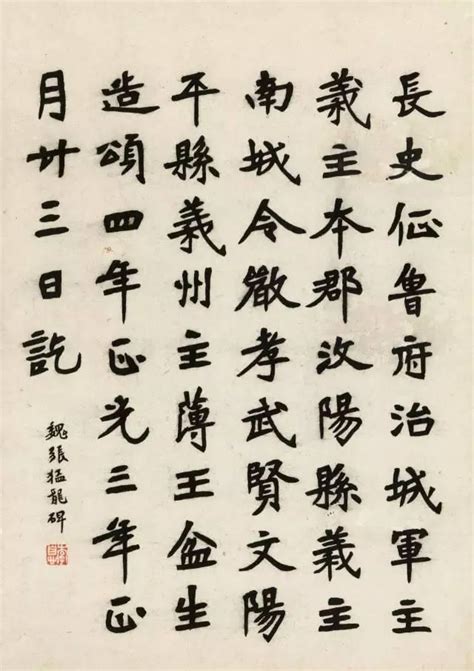 長史征魯府治城軍主
義主本郡汝陽縣義主
南城令嚴孝武賢文陽
平縣義州主薄王盆生
造頌四年正光三年正
月廿三日訖
魏張猛龍碑